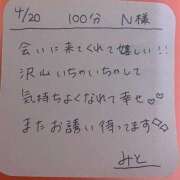 4/20 100分 N様
会いに来てくれて嬉しい!!
沢山いちゃいちゃして
気持ちよくなれて幸せ♡♡
またお誘い待ってます♡♡
みと